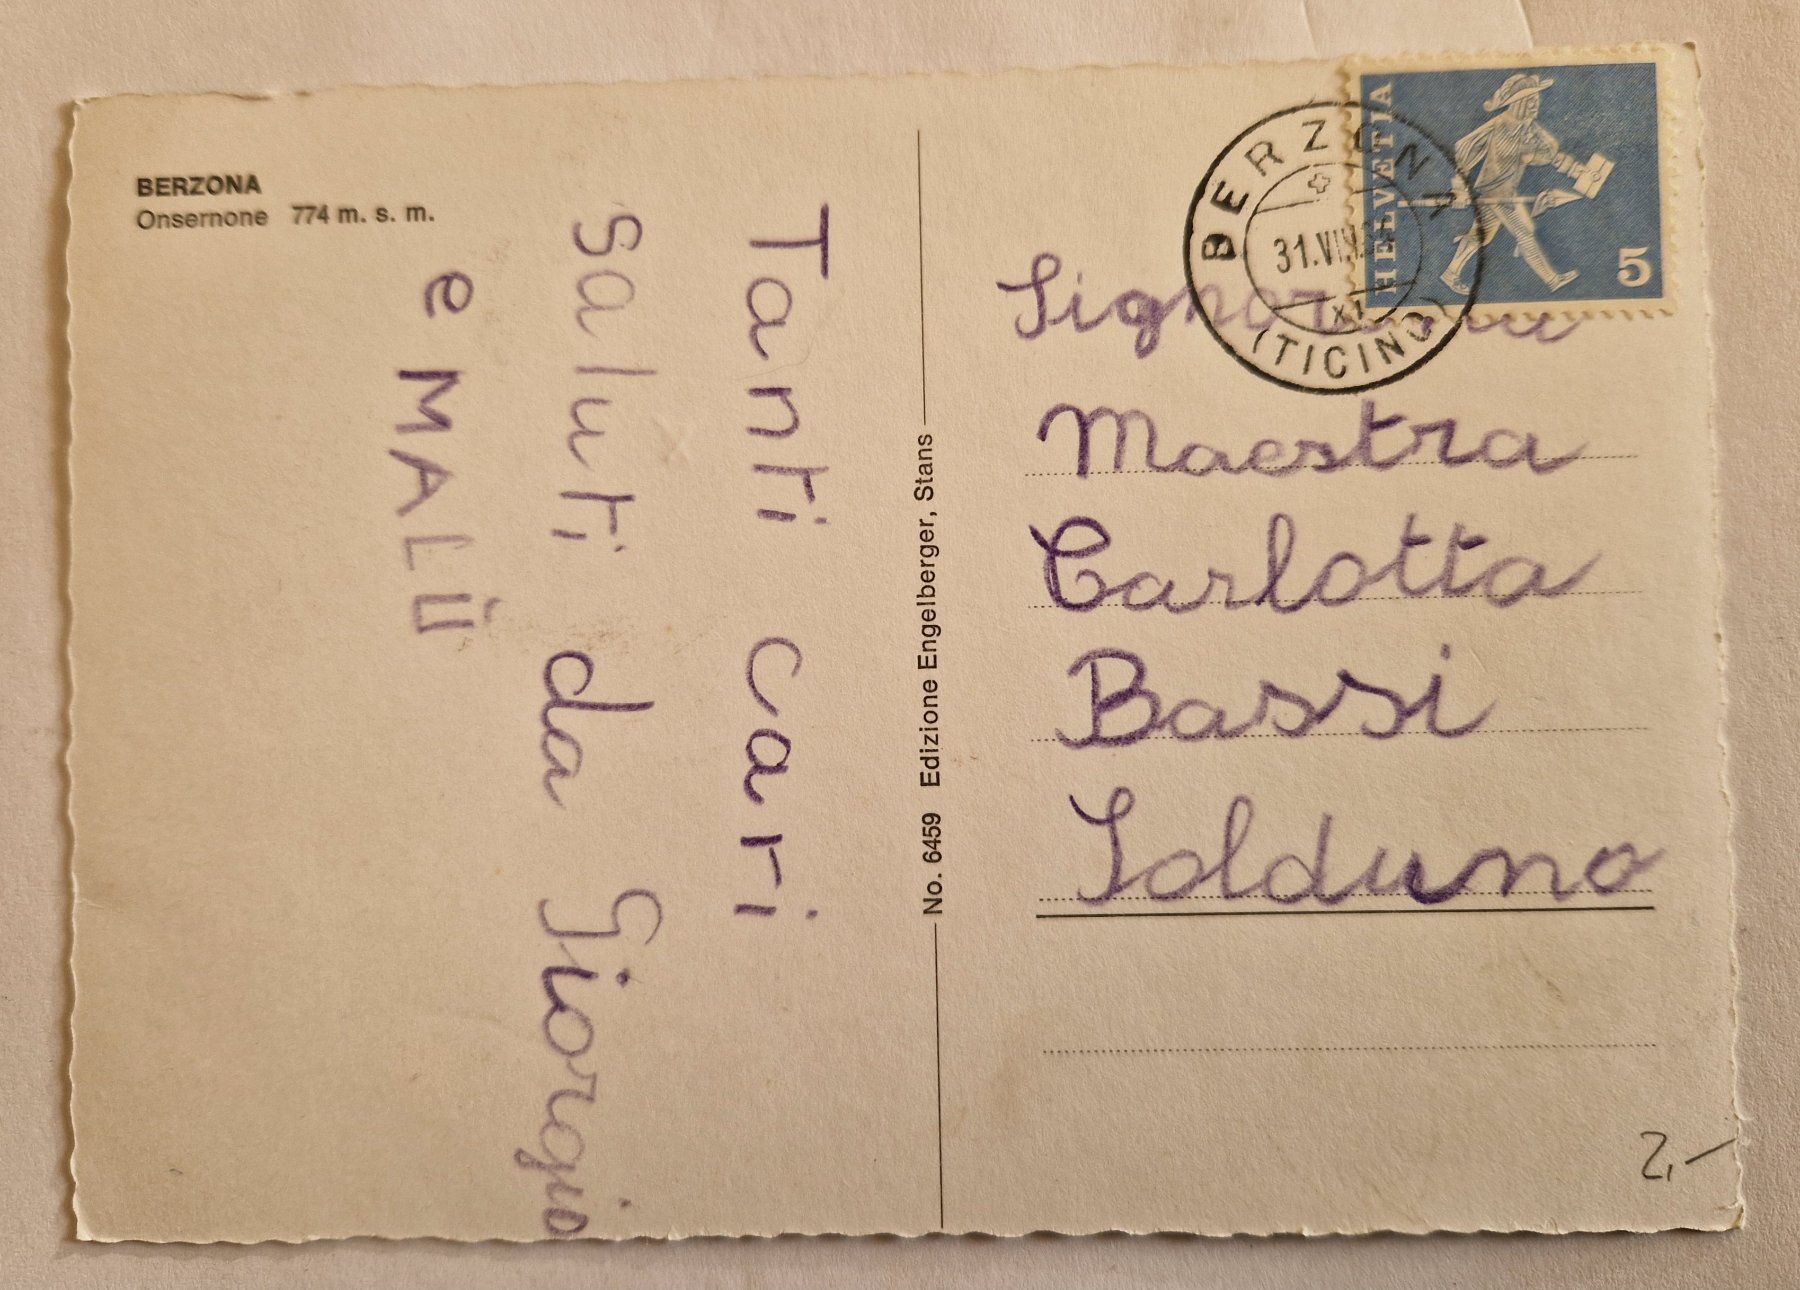 BERZONA
Onsernone 774 m. s. m.
Tanti cari
saluti da Giorgio
e MALÜ
No. 6459 Edizione Engelberger, Stans
HELVETIA
5
BERZONA
(TICINO)
Maestra
Carlotta
Bassi
Solduno
2,-